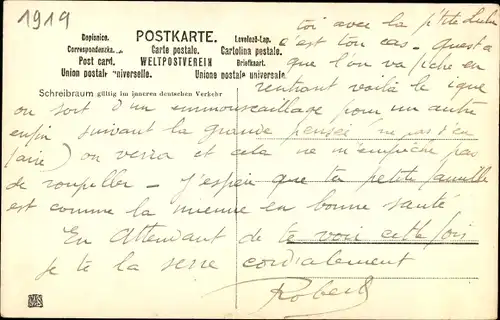 1919
Dopisnice. POSTKARTE. Levelező-Lap.
Correspondenzka. Carte postale. Cartolina postale.
Post card. WELTPOSTVEREIN Briefkaart.
Union postale universelle. Unione postale universale.
Schreibraum gültig im inneren deutschen Verkehr
toi avec la p'tite
c'est ton cas - Quest à
que l'on va fiche en
rentrant voilà le ique
on sort d'un emmouscaillage pour un autre
enfin suivant la grande pensée (ne pas s'en
faire) on verra et cela ne m'empêche pas
de roupiller - J'espère que ta petite famille
est comme la mienne en bonne santé
En attendant de te voir cette fois
je te la serre cordialement
Robert